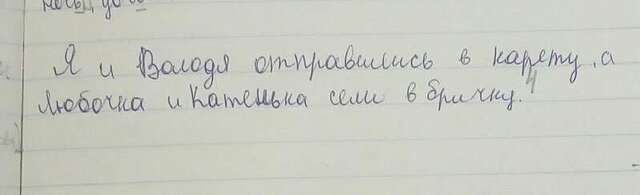 Я и Володя отправились в карету, а
Любочка и Катенька сели в бричку.⁴